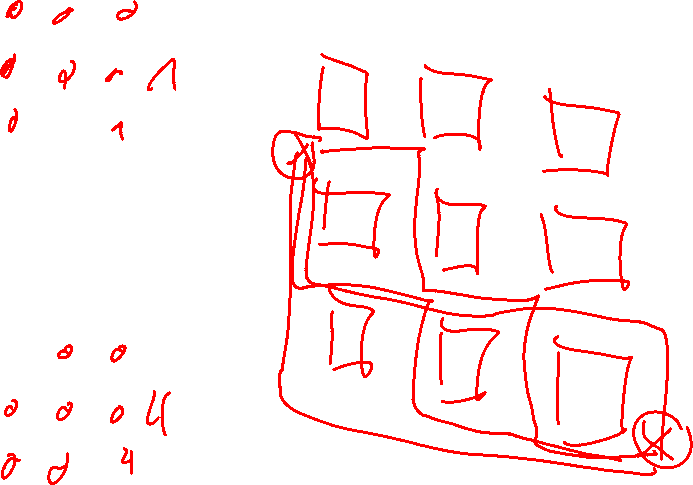 0 0 0
0 0 1 1
0 1
0 0
0 0 0 4
0 0 4